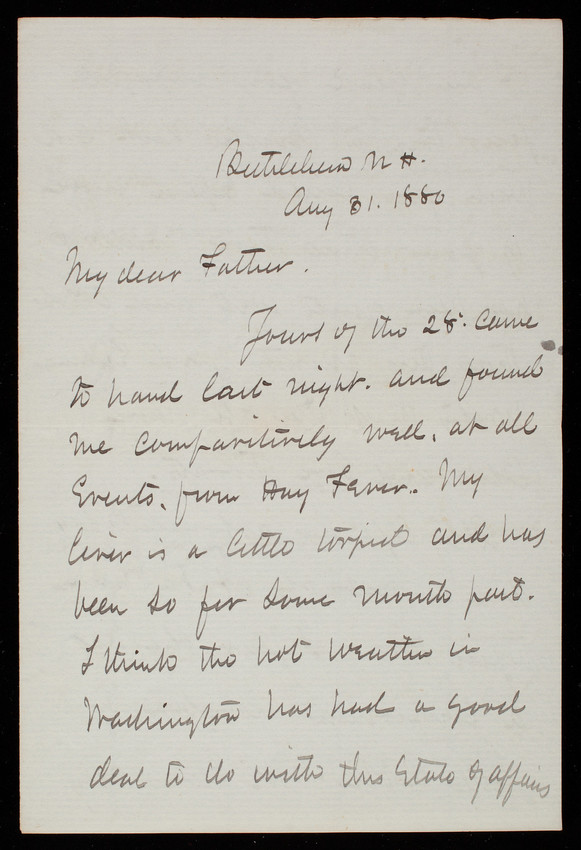 Bethlehem N H.
Aug 31. 1880
My dear Father.
Yours of the 28. came
to hand last night. and found
me comparitively well, at all
Events, from Hay Fever. My
liver is a little torpid and has
been so for some month past.
I think the hot weather in
Washington has had a good
deal to do with this state of affairs